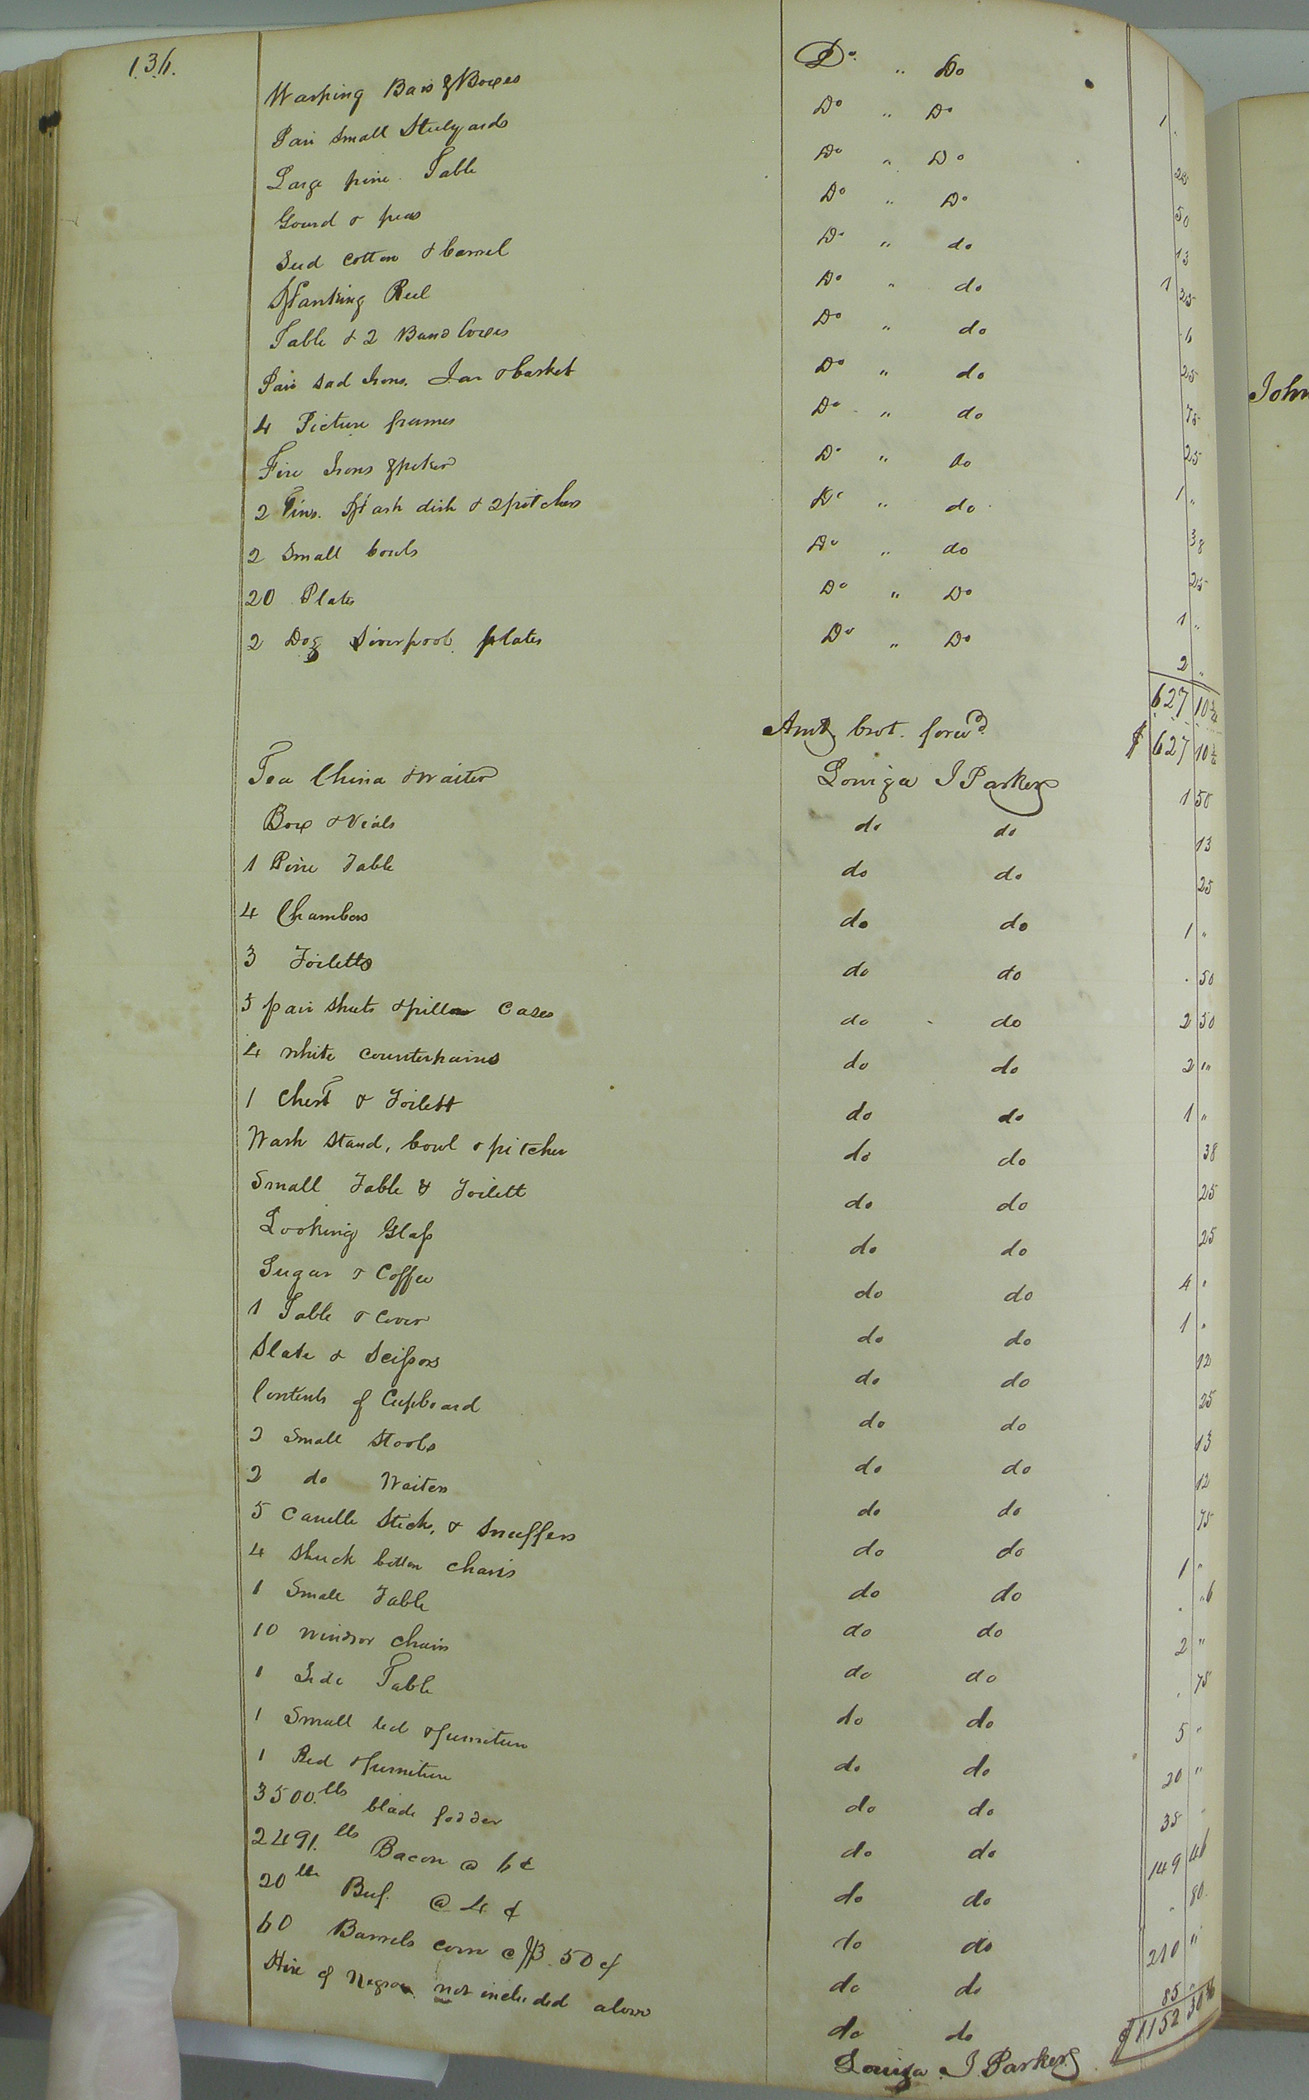 136.
Warping Bars & Boxes Do " Do 1 "
Pair Small Steelyards Do " Do 25
Large pine Table Do " Do 50
Gourd & peas Do " Do 13
Seed Cotton & barrel Do " do 1 25
Hanking Reel Do " do 6
Table & 2 Band boxes Do " do 25
Pair Sad Irons, Jar & basket Do " do 75
4 Picture frames Do " do 25
Fire Irons & poker Do " do 1 "
2 Tins. Wash dish & 2 pitchers Do " do 38
2 Small bowls Do " do 25
20 Plates Do " Do 1 "
2 Doz Liverpool plates Do " Do 2 "
627 10½
Amt. brot. forwd $ 627 10½
Tea China & waiter Louiza J Parker 1 50
Box & Vials do do 13
1 Pine Table do do 25
4 Chambers do do 1 "
3 Toiletts do do . 50
5 pair Sheets & pillow Cases do do 2 50
4 white Counterpains do do 2 "
1 Chest & Toilett do do 1 "
Wash Stand, bowl & pitcher do do 38
Small Table & Toilett do do 25
Looking Glass do do 25
Sugar & Coffee do do 4 "
1 Table & Cover do do 1 "
Slate & Scissors do do 12
Contents of Cupboard do do 25
2 Small Stools do do 13
2 do Waiters do do 12
5 Candle Stick, & Snuffers do do 75
4 Shuck bottom chairs do do 1 "
1 Small Table do do . 6
10 windsor chairs do do 2 "
1 Side Table do do . 75
1 Small bed & furniture do do 5 "
1 Bed & furniture do do 20 "
3500 lbs blade fodder do do 35 "
2491. lbs Bacon @ 6¢ do do 149 46
20 lbs Beef. @ 4 ¢ do do . 80
60 Barrels corn @ $3.50 ¢ do do 210 "
Hire of Negroes not included above do do 85 "
Louiza J. Parker $1152
John